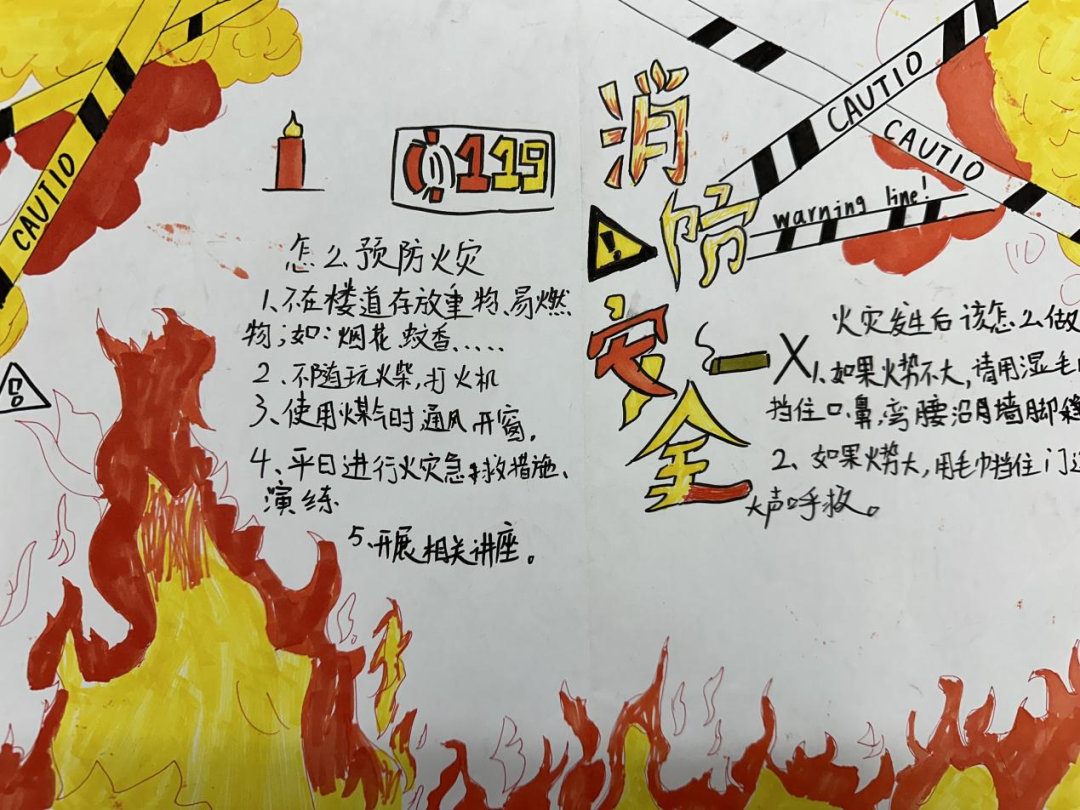 CAUTIO
119
怎么预防火灾
1、不在楼道存放重物、易燃
物；如：烟花、蚊香......
2、不随玩火柴，打火机
3、使用煤气时通风开窗。
4、平日进行火灾急救措施、
演练
5、开展相关讲座。
消防安全
CAUTIO
CAUTIO
warning line!
火灾发生后该怎么做
1、如果火势不大，请用湿毛
挡住口鼻，弯腰沿月墙脚
2、如果火势大，用毛巾挡住门
大声呼救。